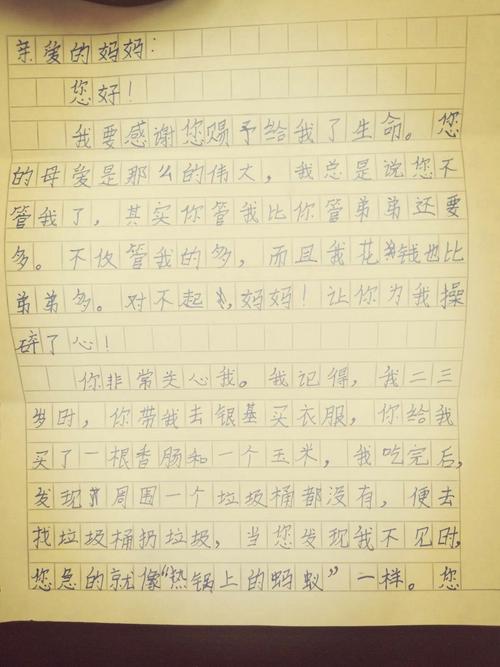 亲爱的妈妈:
您好!
我要感谢您赐予给我了生命。您
的母爱是那么的伟大,我总是说您不
管我了,其实你管我比你管弟弟还要
多。不仅管我的多,而且我花钱也比
弟弟多。对不起,妈妈!让你为我操
碎了心!
你非常关心我。我记得,我二三
岁时,你带我去银基买衣服,你给我
买了一根香肠和一个玉米,我吃完后,
发现周围一个垃圾桶都没有,便去
找垃圾桶扔垃圾,当您发现我不见时,
您急的就像“热锅上的蚂蚁”一样。您